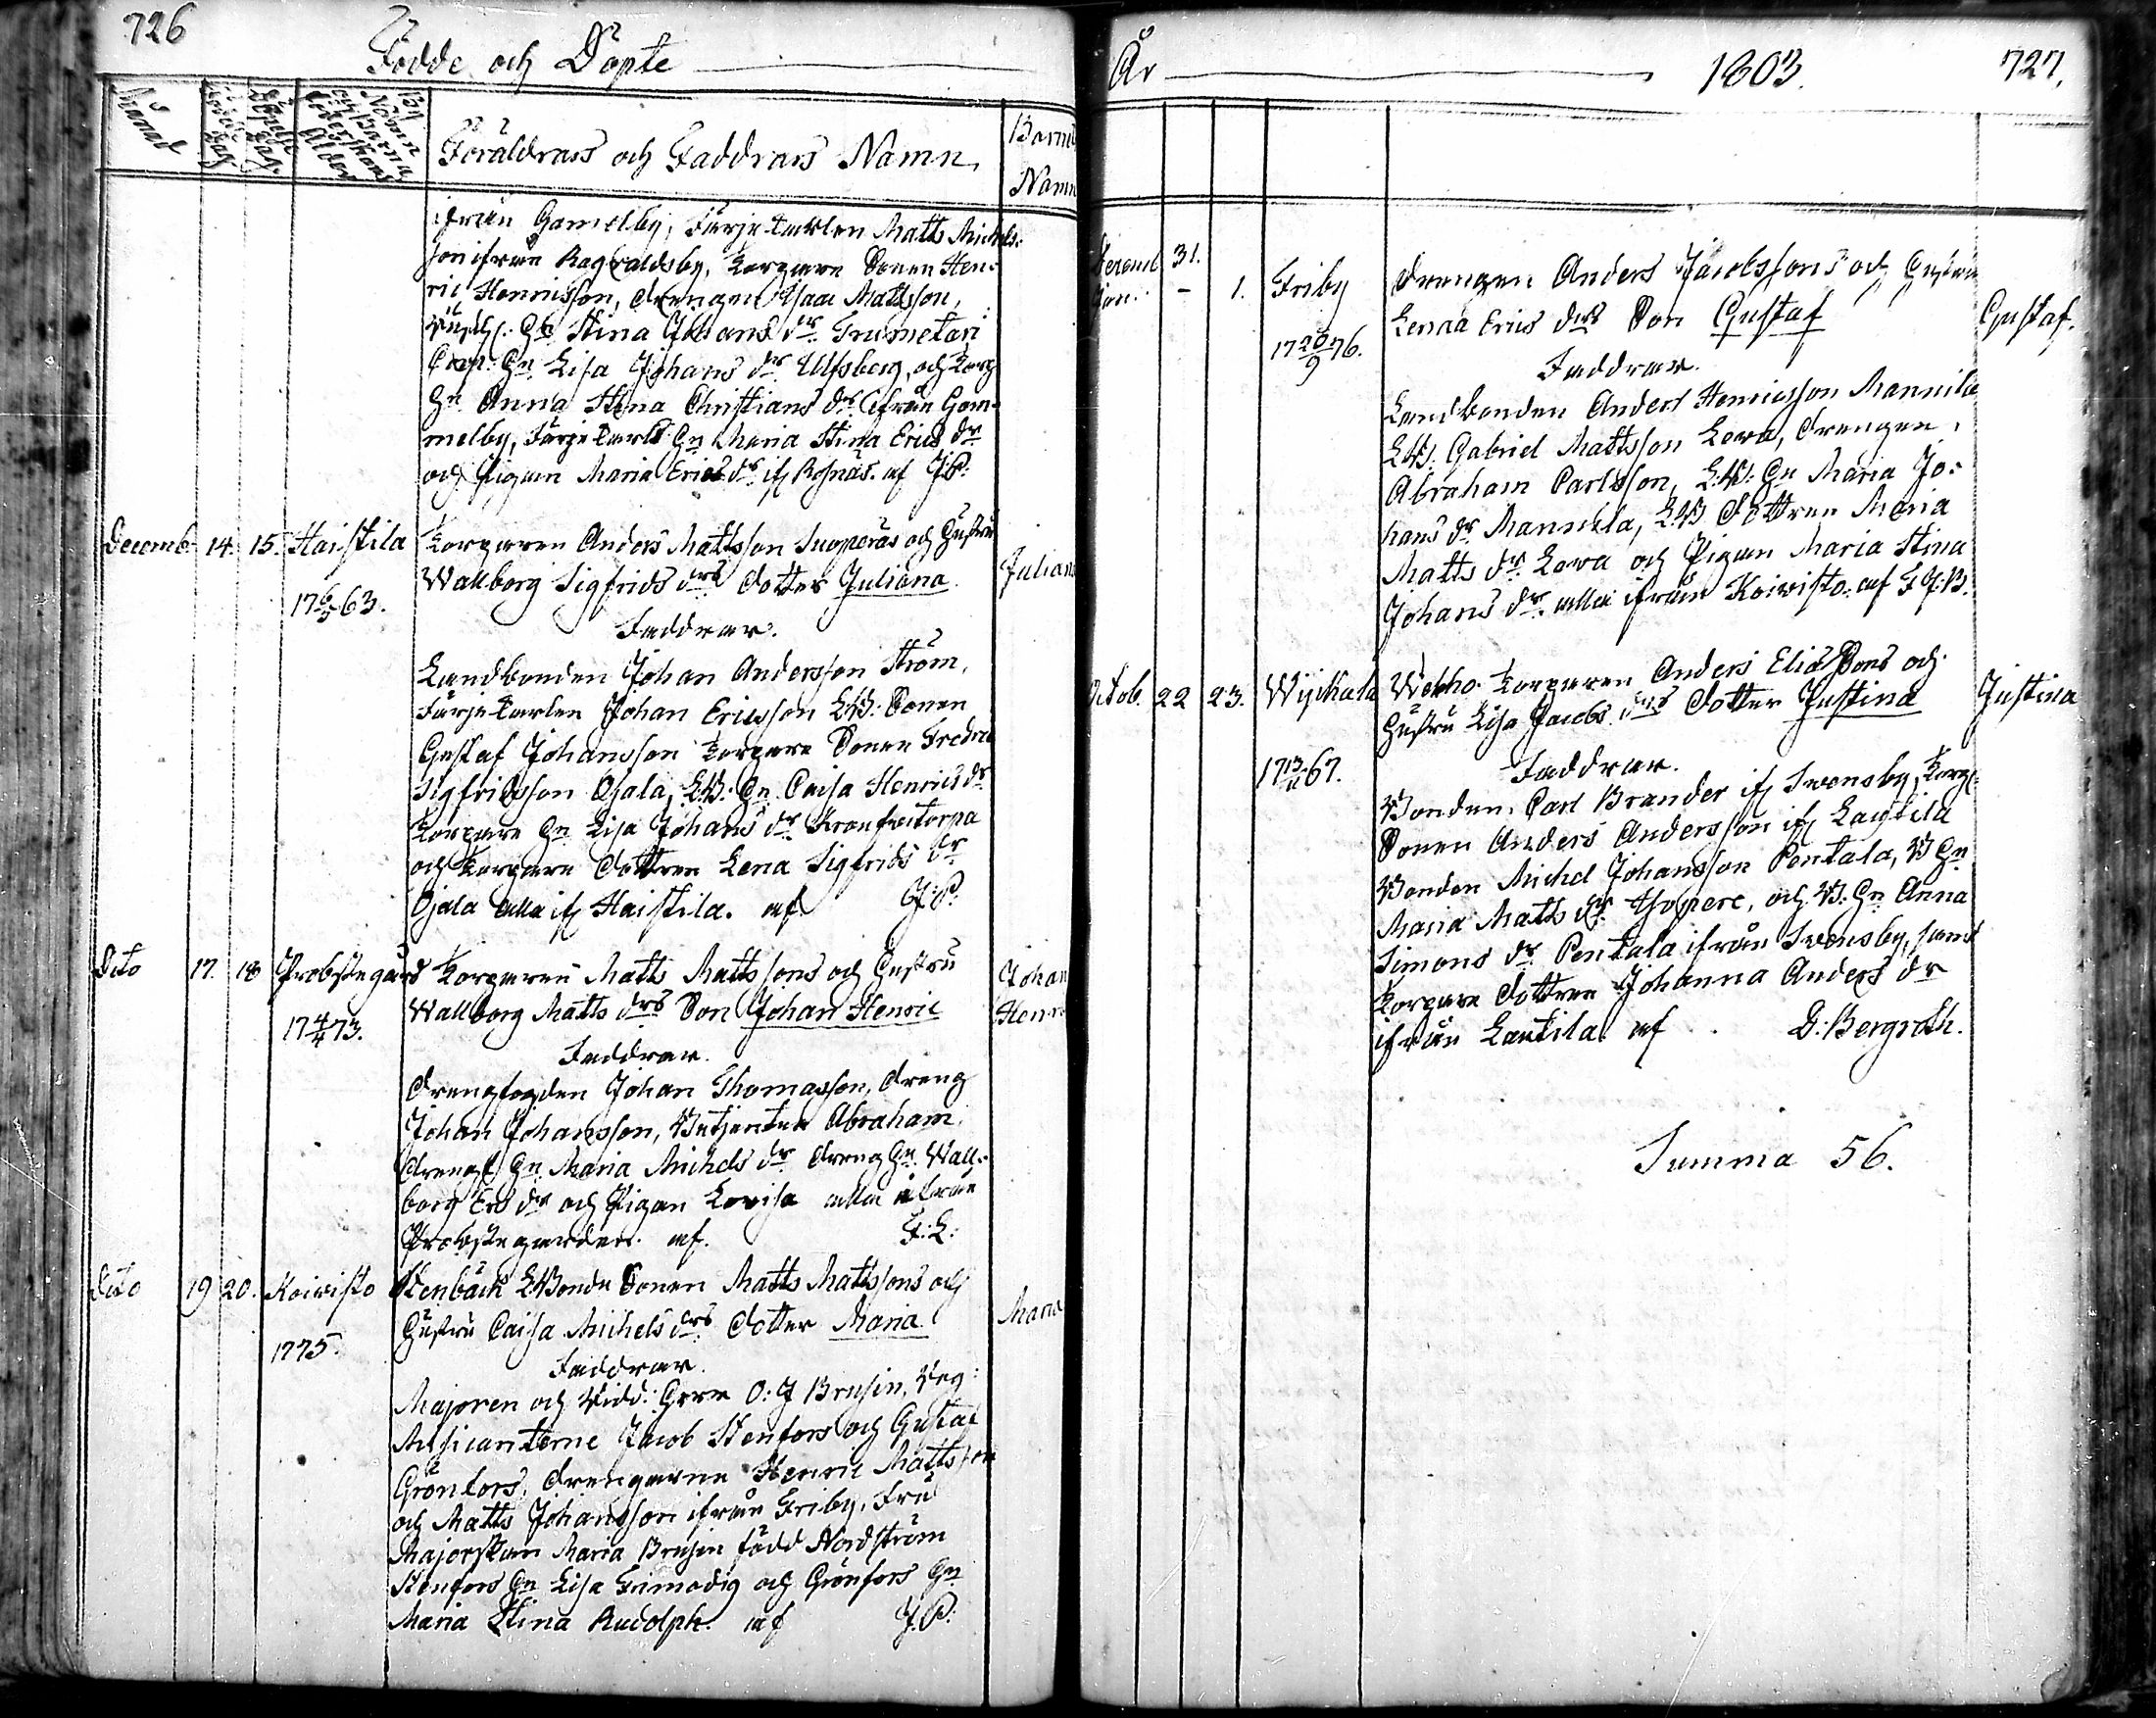 726
Födde och Döpte
Månad
Födelse Dag
Döpelse Dag
By Namn och Barna Föderskans Ålder
Föräldrars och Faddrars Namn
Barnets Namn
ifrån Gamelby, Färjekarlen Matts Michels-
son ifrån Ragvaldsby, Torpare Sonen Hen-
ric Henricsson, Drengen Isaac Mattsson,
Hu Stina Johans dr Trumetari
Corp: Hu Lisa Johans dr Ulfsberg, och Torp
Hu Anna Stina Christians dr ifrån Gam-
melby, Färje Karls Hu Maria Stina Erics dr
och Pigan Maria Erics dr if Rosnäs. af J P:
Decemb. 14. 15. Haistila
Torparen Anders Mattsson Suoperäs och Hustru
Wallborg Sigfrids drs Dotter Juliana
Juliana
17 6/5 63.
Faddrar.
Landbonden Johan Andersson Ström,
Färje Karlen Johan Ericsson LB: Sonen
Gustaf Johansson Torpare Sonen Fredric
Sigfridsson Ojala, LB: Hu Caisa Henrics dr
Torpare Hu Lisa Johans dr
och Torpare Dottren Lena Sigfrids dr
Ojala alla if Haistila. af J: P:
Dito 17. 18 Probstegård
Torparen Matts Mattssons och Hustru
Wallborg Matts drs Son Johan Henric
Johan Henric
17 4/4 73.
Faddrar.
Drengfogden Johan Thomasson, Dreng
Johan Johansson, Betjenten Abraham
Drengf Hu Maria Michels dr Dreng Hu Wall-
borg Ers dr och Pigan Lovisa alla ifrån
Probstegården. af. F: L:
Dito 19 20. Koivisto
Stenbäck LBonde Sonen Matts Mattssons och
Hustru Caisa Michels drs Dotter Maria
Maria
1775.
Faddrar.
Majoren och Ridd: Herr O: J Brusin, Reg:
Musicanterne Jacob Stenfors och Gustaf
Grönfors, Drengarne Henric Mattsson
och Matts Johansson ifrån Friby, Fru
Majorskan Maria Brusin född Nordström
Stenfors Hu Lisa Frimodig och Grönfors Hu
Maria Stina Rudolph. af J. P:
År 1803. 727.
Decemb 31.
Jan. - 1. Friby
Drengen Anders Jacobssons och Hustru
Lenaa Erics drs Son Gustaf
Gustaf.
17 20/9 76.
Faddrar.
Landbonden Anders Henricsson Mannila
LB. Gabriel Mattsson Lova, Drengen
Abraham Carlsson, L:B: Hu Maria Jo-
hans dr Mannila, LB Dottren Maria
Matts dr Lova och Pigan Maria Stina
Johans dr. alla ifrån Koivisto. af F J: B.
Octob. 22 23. Wijckala
Torparen Anders Eliæ Sons och
Hustru Lisa Jacobs drs Dotter Justina
Justina
17 13/11 67.
Faddrar.
Bonden Carl Brander if Svensby, Torp:
Sonen Anders Andersson if Lautila
Bonden Michel Johansson Pentala, B Hu
Maria Matts dr, och B: Hu Anna
Simons dr Pentala ifrån Svensby, samt
Torpare Dottren Johanna Anders dr
ifrån Lautila af D: Bergroth.
Summa 56.